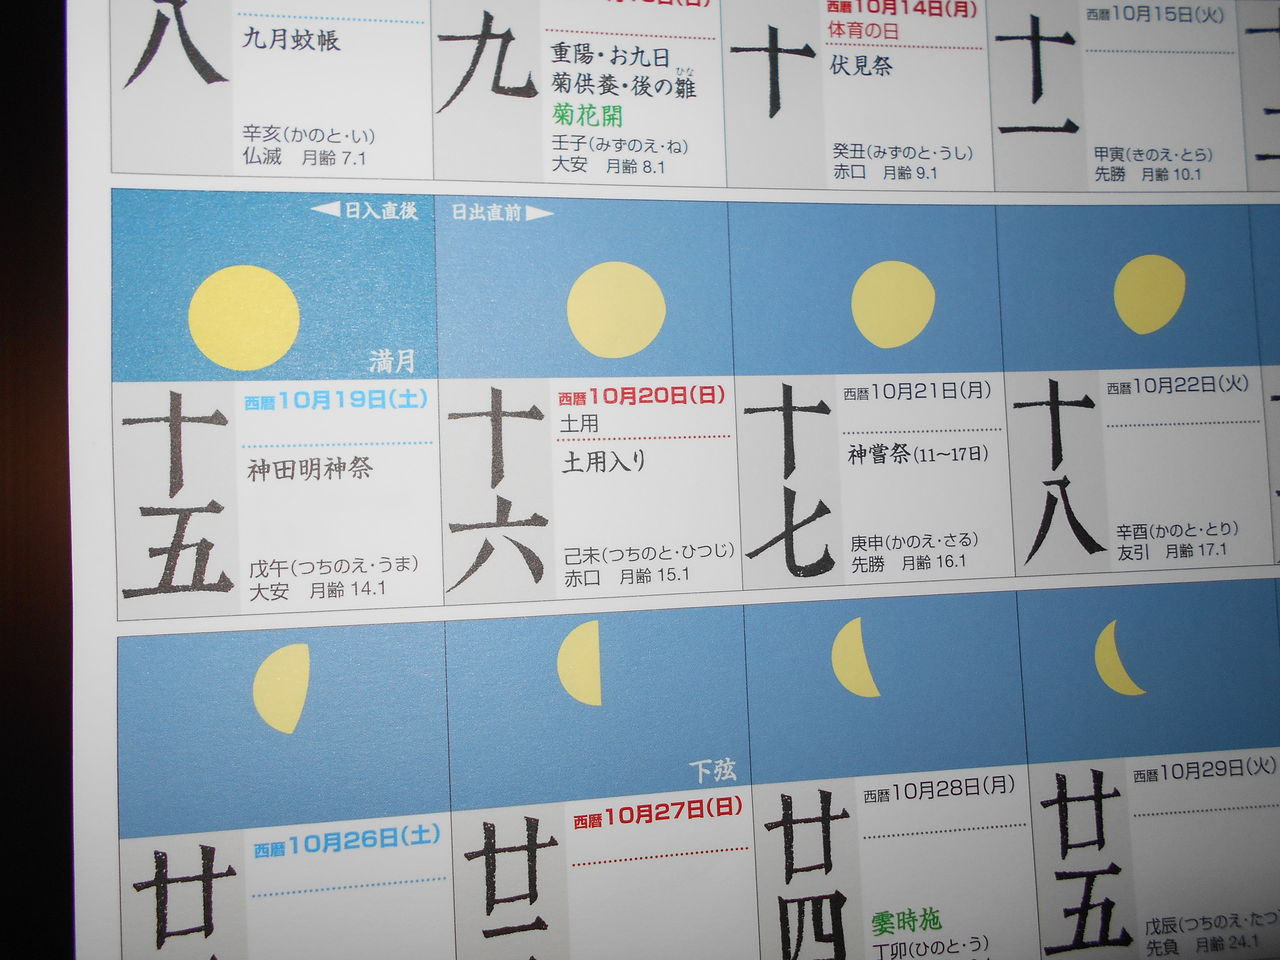 八
九月蚊帳
辛亥(かのと・い)
仏滅 月齢 7.1
九
重陽・お九日
菊供養・後の雛
ひな
菊花開
壬子(みずのえ・ね)
大安 月齢 8.1
十
西暦10月14日(月)
体育の日
伏見祭
癸丑(みずのと・うし)
赤口 月齢 9.1
十一
西暦10月15日(火)
甲寅(きのえ・とら)
先勝 月齢 10.1
◀日入直後
満月
日出直前▶
十五
西暦10月19日(土)
神田明神祭
戊午(つちのえ・うま)
大安 月齢 14.1
十六
西暦10月20日(日)
土用
土用入り
己未(つちのと・ひつじ)
赤口 月齢 15.1
十七
西暦10月21日(月)
神嘗祭(11〜17日)
庚申(かのえ・さる)
先勝 月齢 16.1
十八
西暦10月22日(火)
辛酉(かのと・とり)
友引 月齢 17.1
下弦
廿
西暦10月26日(土)
廿
西暦10月27日(日)
廿四
西暦10月28日(月)
霎時施
丁卯(ひのと・う)
廿五
西暦10月29日(火)
戊辰(つちのえ・たつ
先負 月齢 24.1